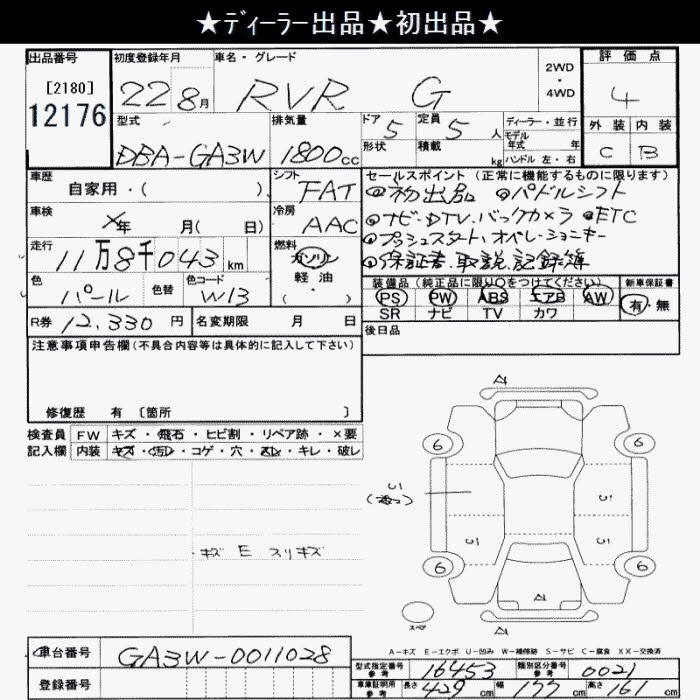 ★ディーラー出品★初出品★
出品番号 初度登録年月 車名・グレード 評価点
[2180]
12176
22 8月 RVR G
2WD
・
4WD
4
型式 排気量 ドア 定員 ディーラー・並行 外装 内装
DBA-GA3W 1800cc 5 5人
モデル
年式 年
形状 積載 kg ハンドル 左・右
C B
車歴 シフト セールスポイント(正常に機能するものに限ります)
自家用・( ) FAT
◎初出品 ◎パドルシフト
車検 冷房
×年 月( 日) AAC
◎ナビ・DTV.バックカメラ ◎ETC
走行 燃料
11万8千043km ガソリン
軽・油
( )
◎プッシュスタート、オペレーションキー
◎保証書.取説.記録簿
色 色替 色コード
パール W13
装備品(純正品に限り○をつけてください) 新車保証書
PS PW ABS エアB AW 有・無
SR ナビ TV カワ
R券 12,330円 名変期限 月 日
後日品
注意事項申告欄(不具合内容等は具体的に記入して下さい)
修復歴 有 〔箇所 〕
検査員 FW キズ・飛石・ヒビ割・リペア跡・×要
記入欄 内装 キズ・汚レ・コゲ・穴・スレ・キレ・破レ
キズ E スリキズ
A
6 6
U
U
U U
6 6
A
A
スペア
A-キズ E-エクボ U-凹み W-補修跡 S-サビ C-腐食 XX-交換済
車台番号 GA3W-0011028
登録番号
型式指定番号
参考 16453
類別区分番号
参考 0021
車庫証明用
参考 長さ 429cm 幅 177cm 高さ 161cm